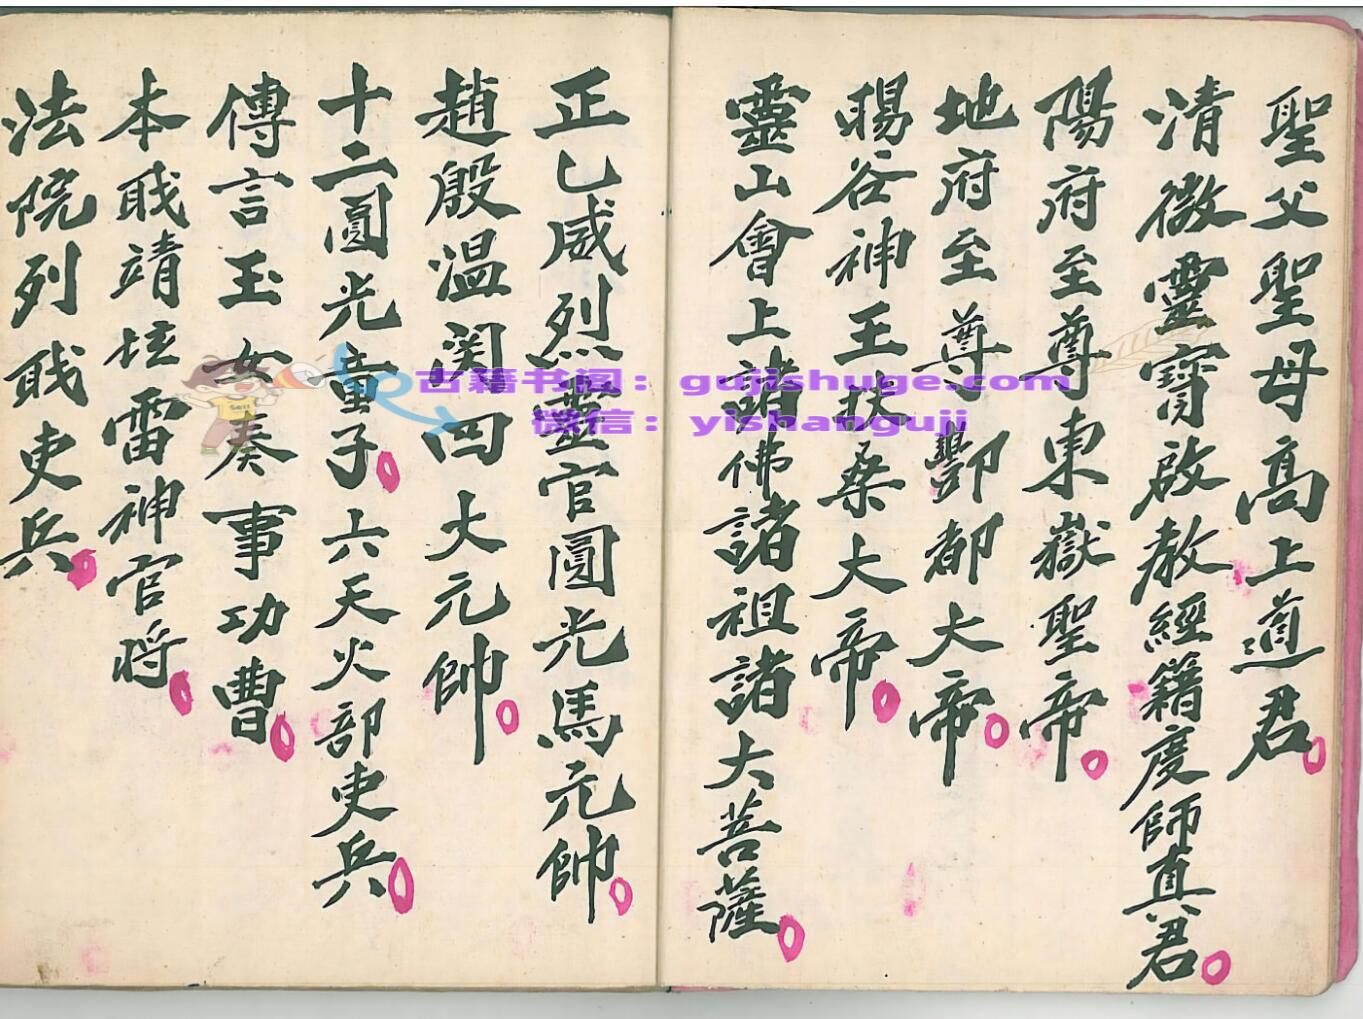 聖父聖母高上道君
清微靈寶啟教經籍度師真君
陽府至尊東嶽聖帝
地府至尊酆都大帝
暘谷神王扶桑大帝
靈山會上諸佛諸祖諸大菩薩
正乙威烈靈官圓光馬元帥
趙殷温関四大元帥
十二圓光童子六天火部吏兵
傳言玉女奏事功曹
本戝靖坛雷神官将
法院列戝吏兵
古籍书阁：gujishuge.com
微信：yishanguji